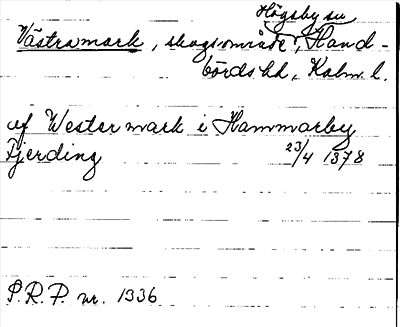 Högsby sn
Västramark, skogsområde, Hand-
börds hd, Kalm. l.
af Westermark i Hammarby
Fjerding 23/4 1378
P.R.P. nr. 1336